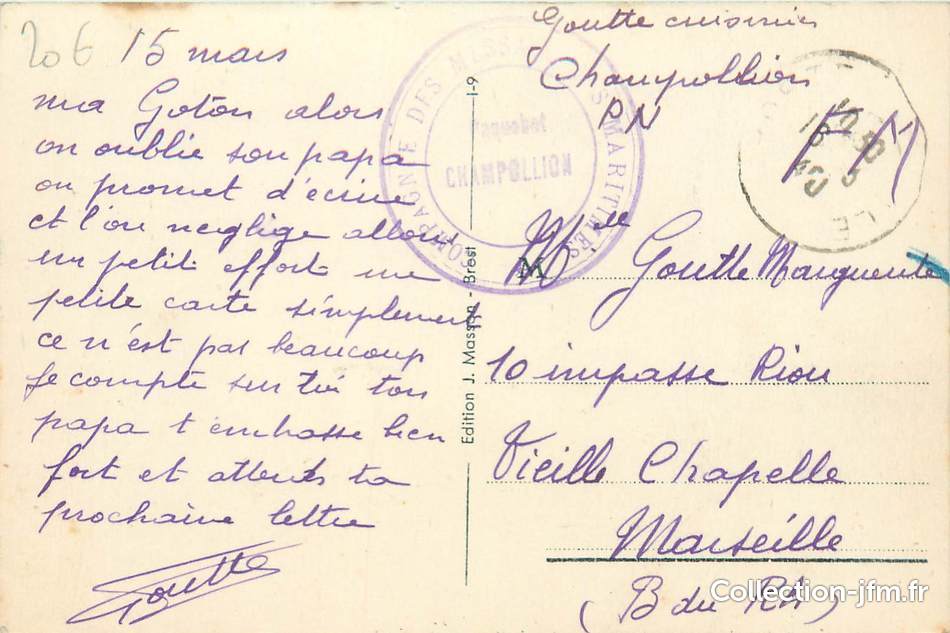 206
15 mars
ma Goton alors
on oublie son papa
on promet d'écrire
et l'on neglige allons
un petit effort une
petite carte simplement
ce n'est pas beaucoup
Je compte sur toi ton
papa t'embrasse bien
fort et attends ta
prochaine lettre
Goutte
Edition J. Masson - Brest
I-9
COMPAGNIE DES MESSAGERIES MARITIMES
Paquebot
CHAMPOLLION
Goutte cuisinier
Champollion
PN
FM
M
Mlle Goutte Marguerite
10 impasse Riou
Vieille Chapelle
Marseille
(B du Rh)
Collection-jfm.fr